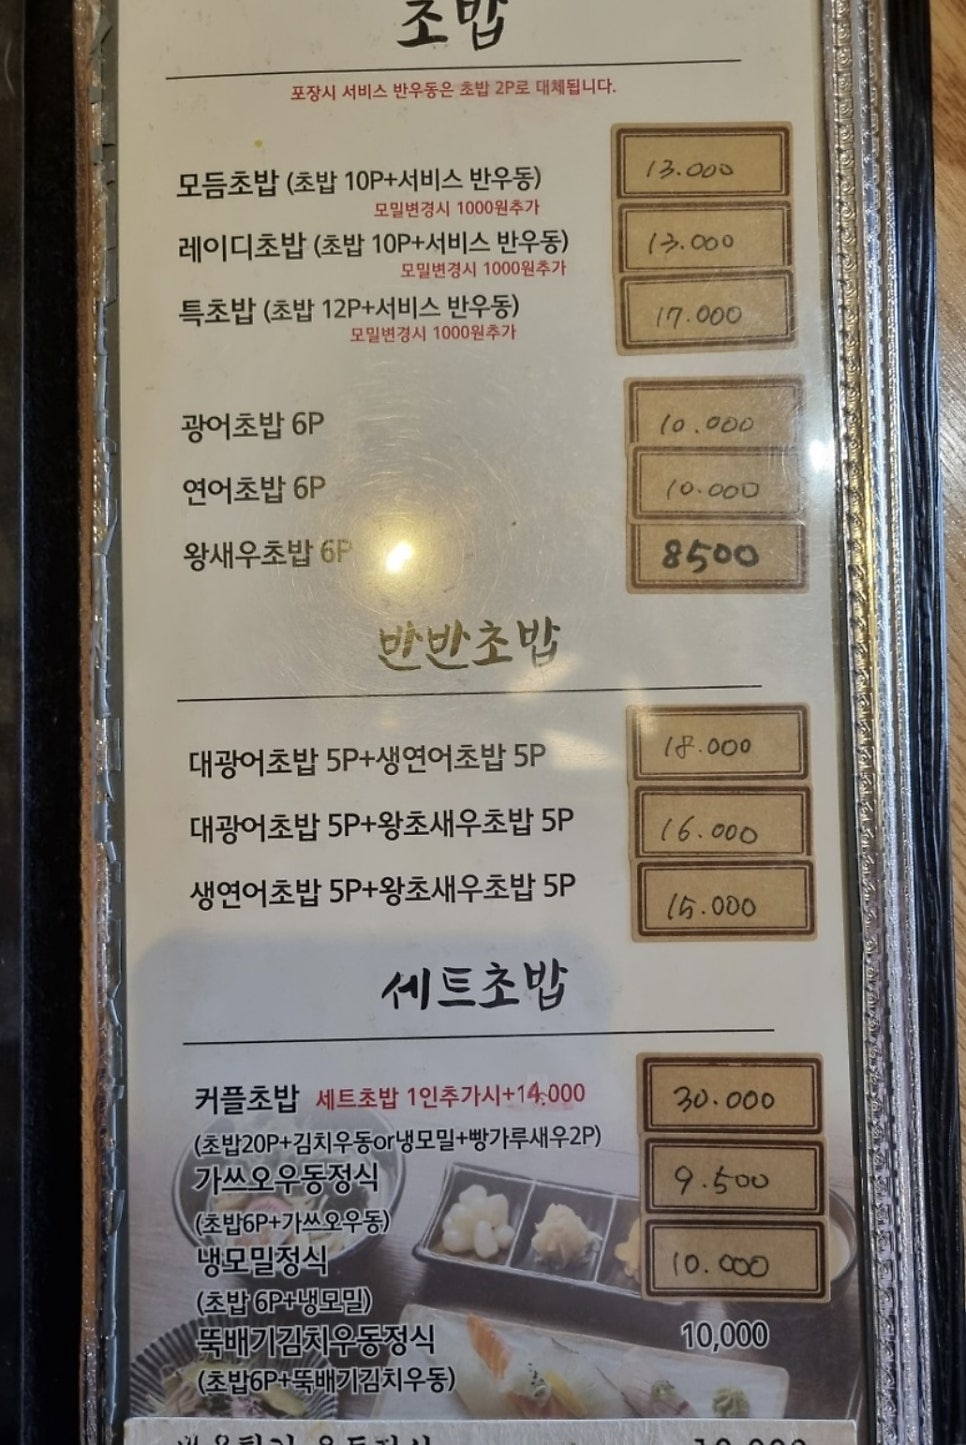 초밥
포장시 서비스 반우동은 초밥 2P로 대체됩니다.
모듬초밥 (초밥 10P+서비스 반우동) 13.000
모밀변경시 1000원추가
레이디초밥 (초밥 10P+서비스 반우동) 13.000
모밀변경시 1000원추가
특초밥 (초밥 12P+서비스 반우동) 17.000
모밀변경시 1000원추가
광어초밥 6P 10.000
연어초밥 6P 10.000
왕새우초밥 6P 8500
반반초밥
대광어초밥 5P+생연어초밥 5P 18.000
대광어초밥 5P+왕초새우초밥 5P 16.000
생연어초밥 5P+왕초새우초밥 5P 15.000
세트초밥
커플초밥 세트초밥 1인추가시+14.000 30.000
(초밥20P+김치우동or냉모밀+빵가루새우2P)
가쓰오우동정식 9.500
(초밥6P+가쓰오우동)
냉모밀정식 10.000
(초밥 6P+냉모밀)
뚝배기김치우동정식 10,000
(초밥6P+뚝배기김치우동)